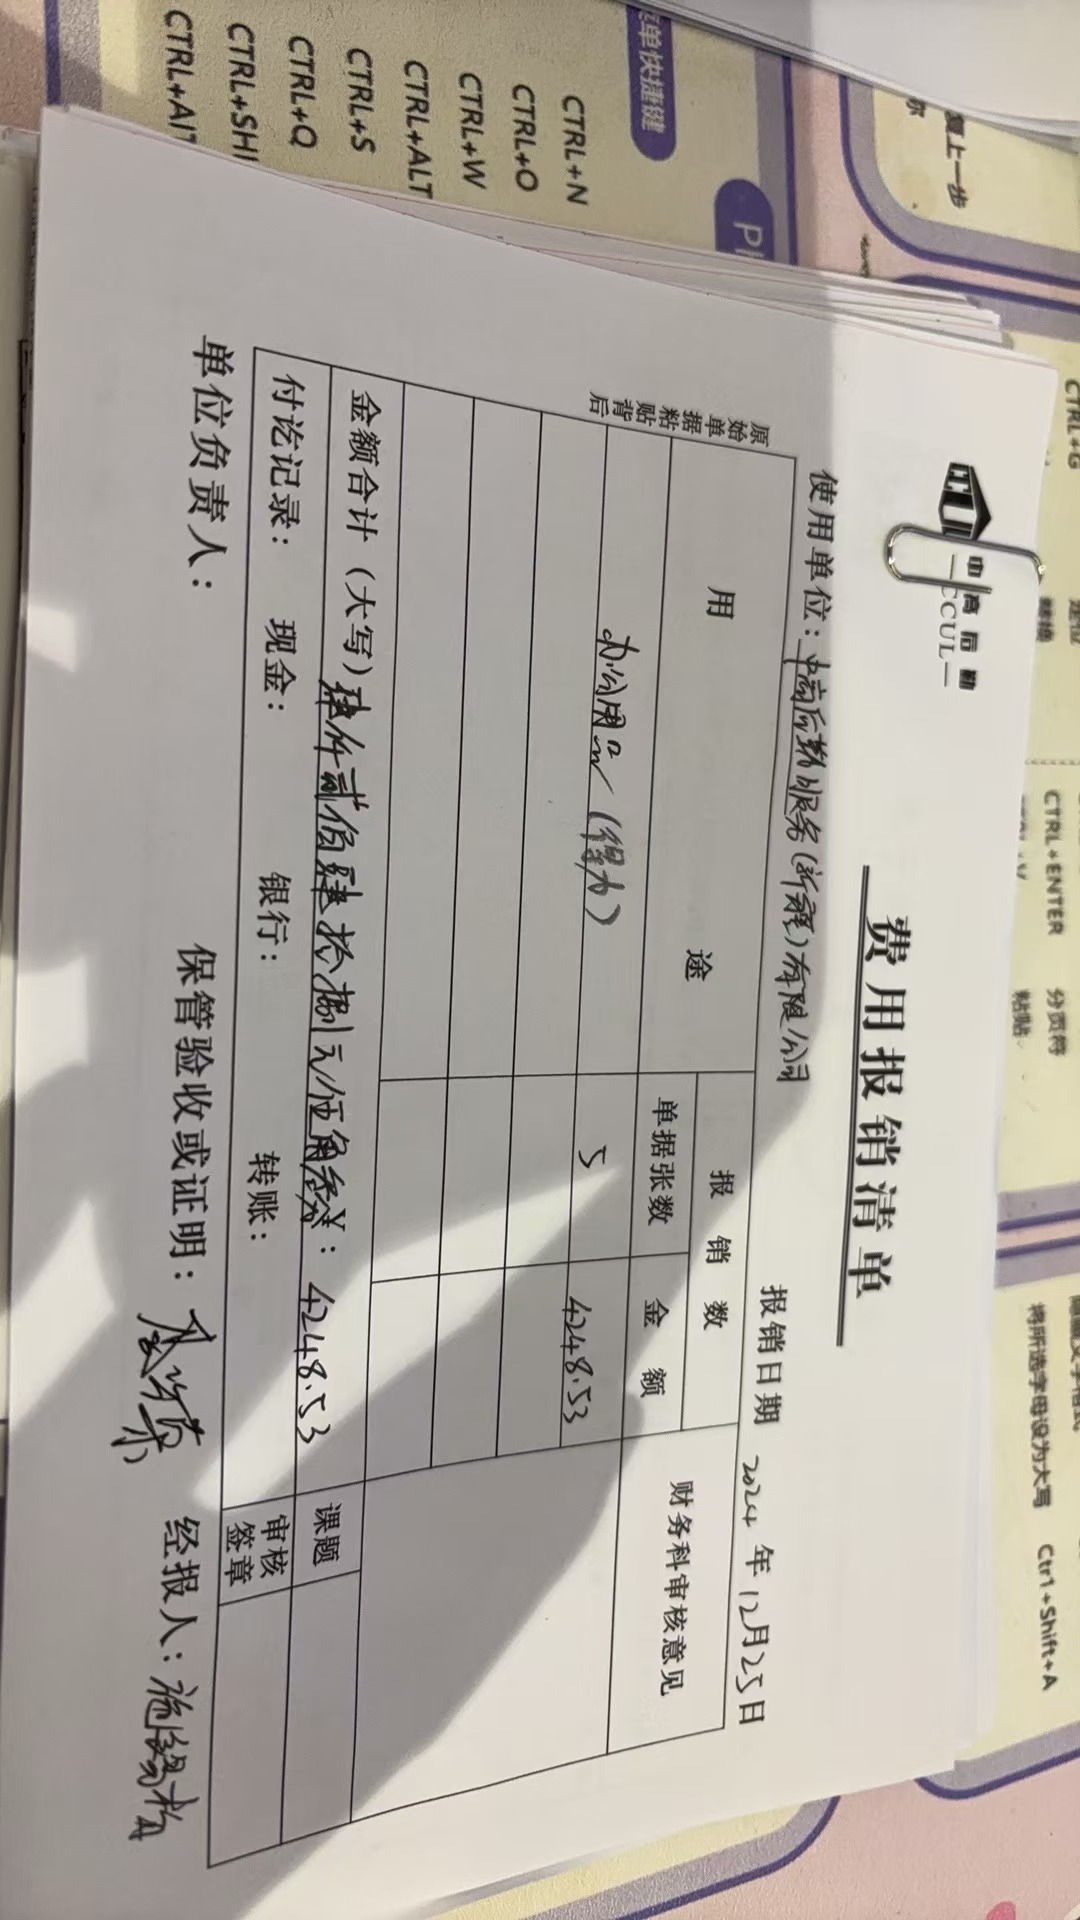 中高后勤
—CCUL—
费用报销清单
使用单位：中高后勤服务（新疆）有限公司
报销日期 2024年12月25日
原始单据粘贴背后
用途
报销数
财务科审核意见
单据张数
金额
办公用品（得力）
5
4248.53
金额合计（大写）肆仟贰佰肆拾捌元伍角叁分￥：4248.53
课题
付讫记录：
现金：
银行：
转账：
审核签章
单位负责人：
保管验收或证明：
经报人：
CTRL+N
CTRL+O
CTRL+W
CTRL+ALT
CTRL+S
CTRL+Q
CTRL+SHI
CTRL+G
单快捷键
复上一步
CTRL+ENTER
分页符
粘贴
转换
定位
将所选字母设为大写
Ctrl+Shift+A